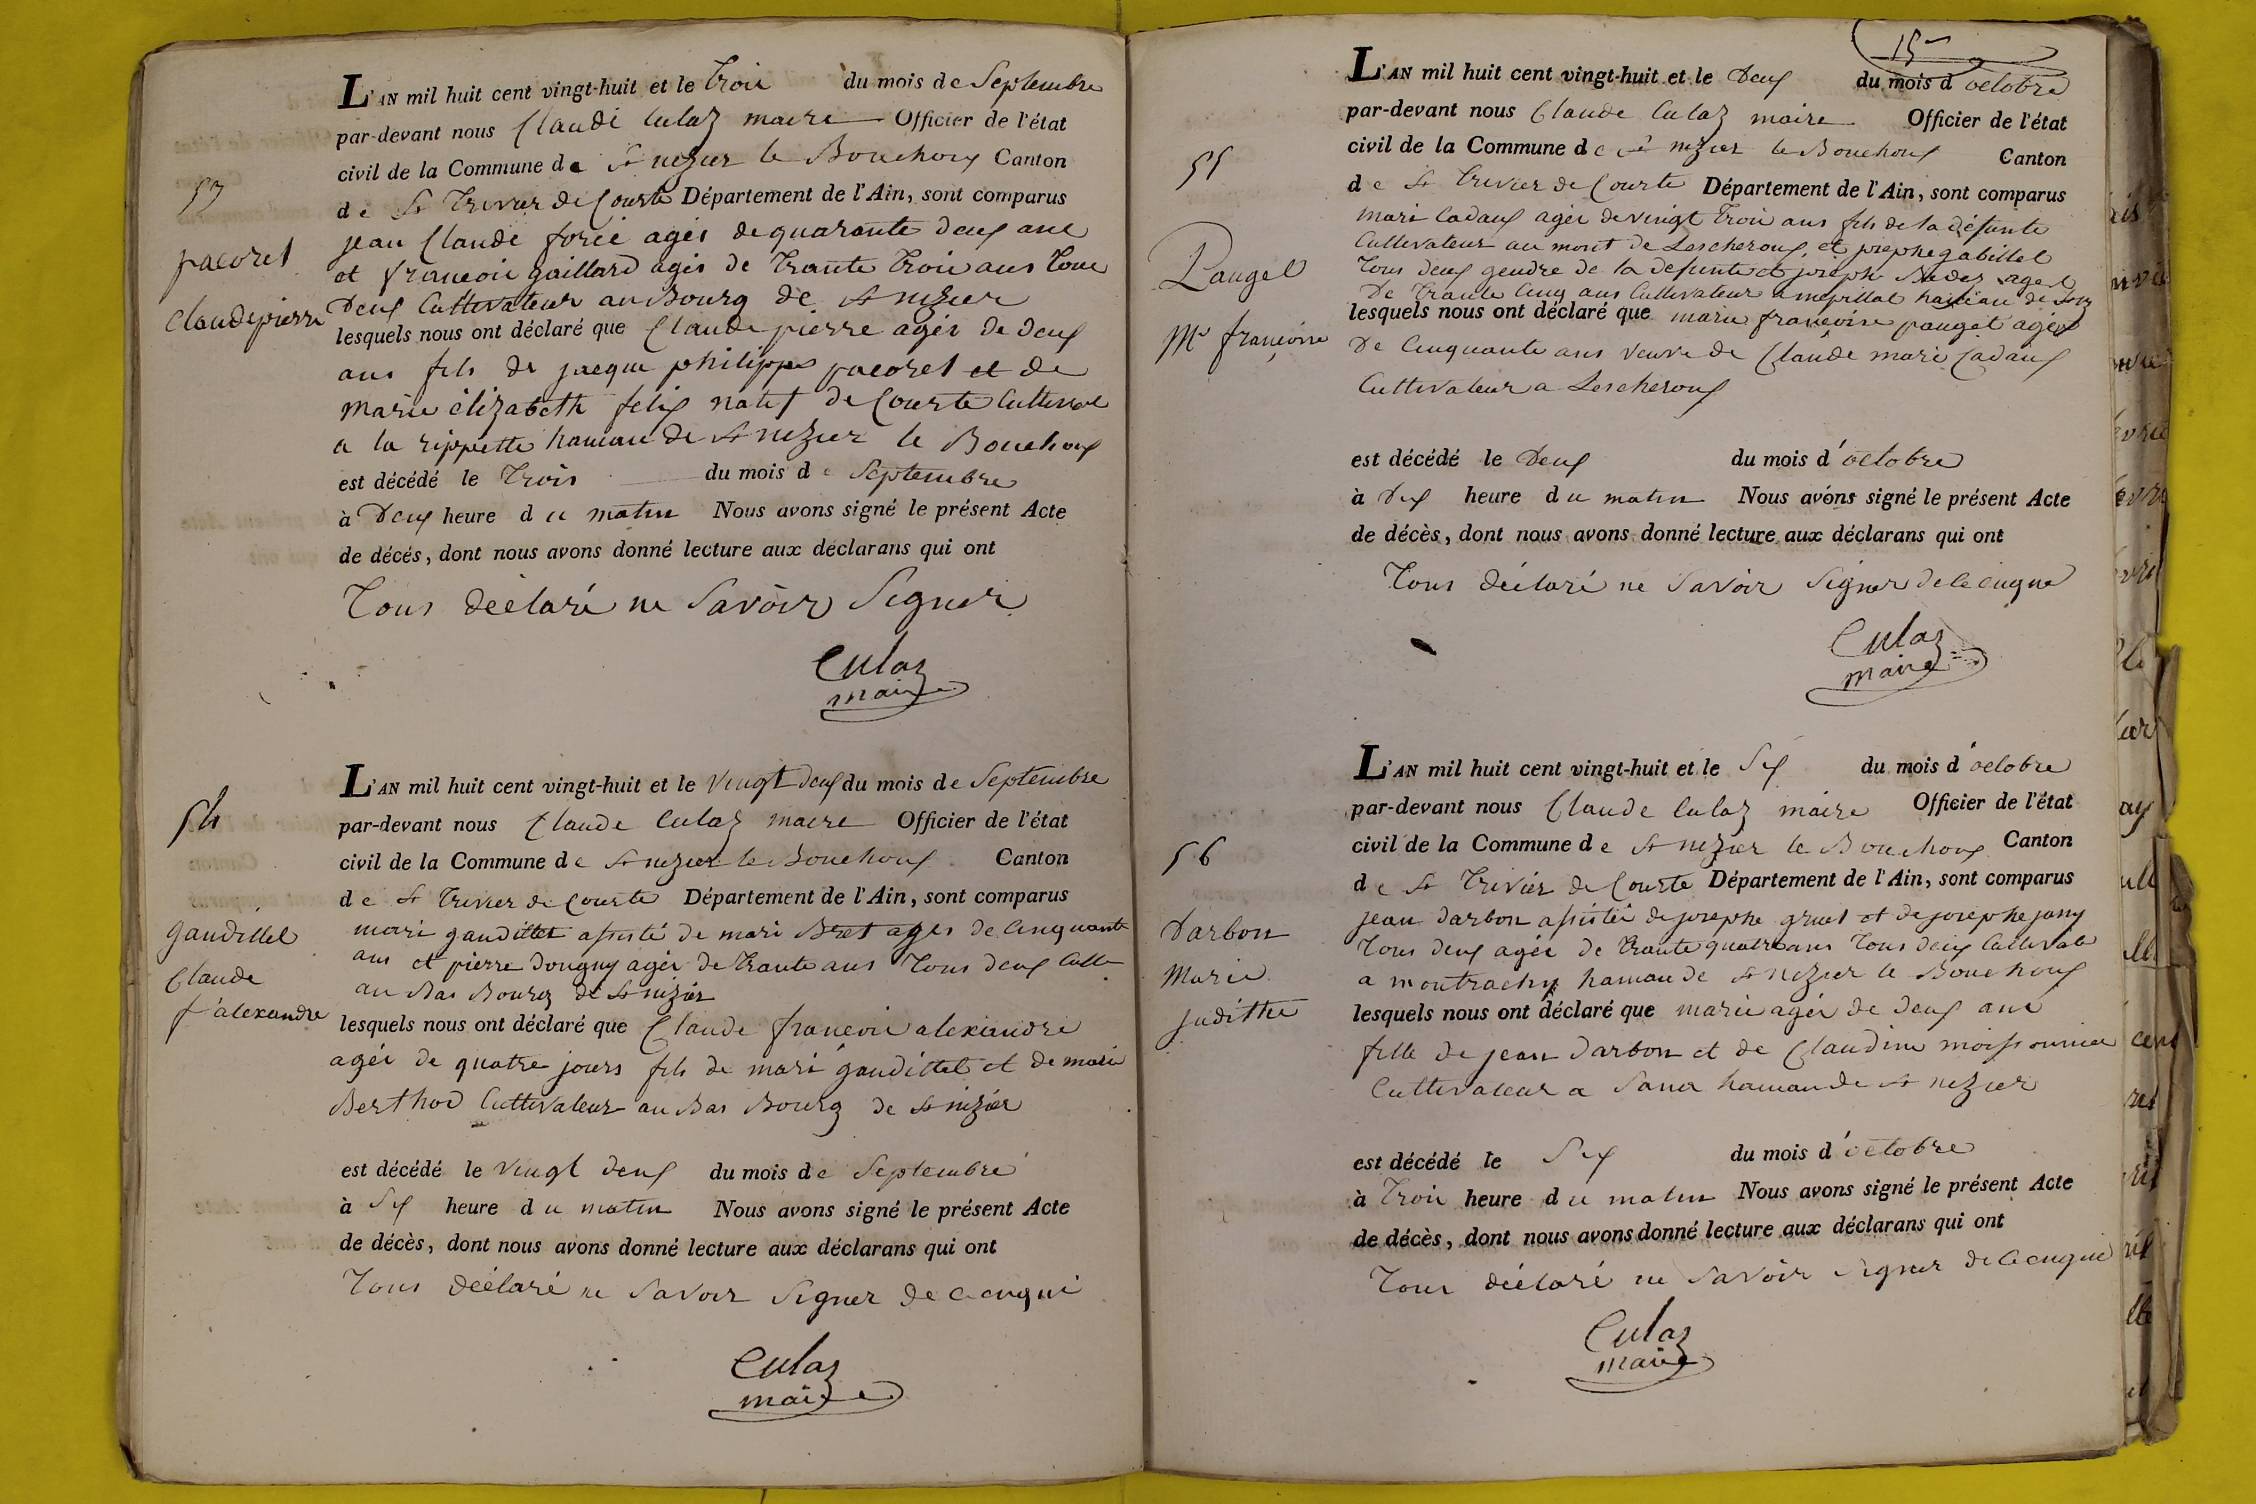 53
pacoret
Claude pierre
L'AN mil huit cent vingt-huit et le trois du mois de Septembre
par-devant nous Claude Culaz maire Officier de l'état
civil de la Commune de St nizier le Bouchoux Canton
de St Trivier de Courte Département de l'Ain, sont comparus
jean Claude forie agés de quarante deux ans
et françois gaillard agés de trante trois ans tous
deux Cultivateur au Bourg de St nizier
lesquels nous ont déclaré que Claude pierre agés de deux
ans fils de jacque philippe pacoret et de
Marie élizabeth felix natif de Courte Cultivat
a la rippette hameau de St nizier le Bouchoux
est décédé le trois du mois de Septembre
à deux heure du matin Nous avons signé le présent Acte
de décés, dont nous avons donné lecture aux déclarans qui ont
tous déclaré ne Savoir Signer
Culaz
maire
54
gaudillet
Claude
f alexandre
L'AN mil huit cent vingt-huit et le vingt deux du mois de Septembre
par-devant nous Claude Culaz maire Officier de l'état
civil de la Commune de St nizier le Bouchoux Canton
de St Trivier de Courte Département de l'Ain, sont comparus
mari gaudillet assisté de mari Bret agés de Cinquante
ans et pierre Dougny agés de trante ans tous deux Cult
au Bas Bourg de St nizier
lesquels nous ont déclaré que Claude françois alexandre
agés de quatre jours fils de mari gaudillet et de mari
Berthod Cultivateur au Bas Bourg de St nizier
est décédé le vingt deux du mois de Septembre
à Six heure du matin Nous avons signé le présent Acte
de décès, dont nous avons donné lecture aux déclarans qui ont
tous déclaré ne Savoir Signer de Ce enquis
Culaz
maire
15
55
Pauget
Me françoise
L'AN mil huit cent vingt-huit et le deux du mois d'octobre
par-devant nous Claude Culaz maire Officier de l'état
civil de la Commune de St nizier le Bouchoux Canton
de St Trivier de Courte Département de l'Ain, sont comparus
mari Cadaux agés de vingt trois ans fils de la défunte
Cultivateur au mont de Lescheroux et josephe gabillet
tous deux gendre de la defunte et joseph agés
de trante Cinq ans Cultivateur a mépillat hameau de
lesquels nous ont déclaré que marie françoise pauget agés
de Cinquante ans veuve de Claude marie Cadaux
Cultivateur a Lescheroux
est décédé le deux du mois d'octobre
à Dix heure du matin Nous avons signé le présent Acte
de décès, dont nous avons donné lecture aux déclarans qui ont
tous déclaré ne Savoir Signer de Ce enquis
Culaz
maire
56
Darbon
Marie
juditte
L'AN mil huit cent vingt-huit et le Six du mois d'octobre
par-devant nous Claude Culaz maire Officier de l'état
civil de la Commune de St nizier le Bouchoux Canton
de St Trivier de Courte Département de l'Ain, sont comparus
jean Darbon assistés de josephe gruet et de josephe jany
tous deux agés de trante quatre ans tous deux Cultivat
a montrachy hameau de St nizier le Bouchoux
lesquels nous ont déclaré que marie agés de deux ans
fille de jean Darbon et de Claudine moissonnier
Cultivateur a Sana hameau de St nizier
est décédé le Six du mois d'octobre
à trois heure du matin Nous avons signé le présent Acte
de décès, dont nous avons donné lecture aux déclarans qui ont
tous déclaré ne Savoir signer de Ce enquis
Culaz
maire